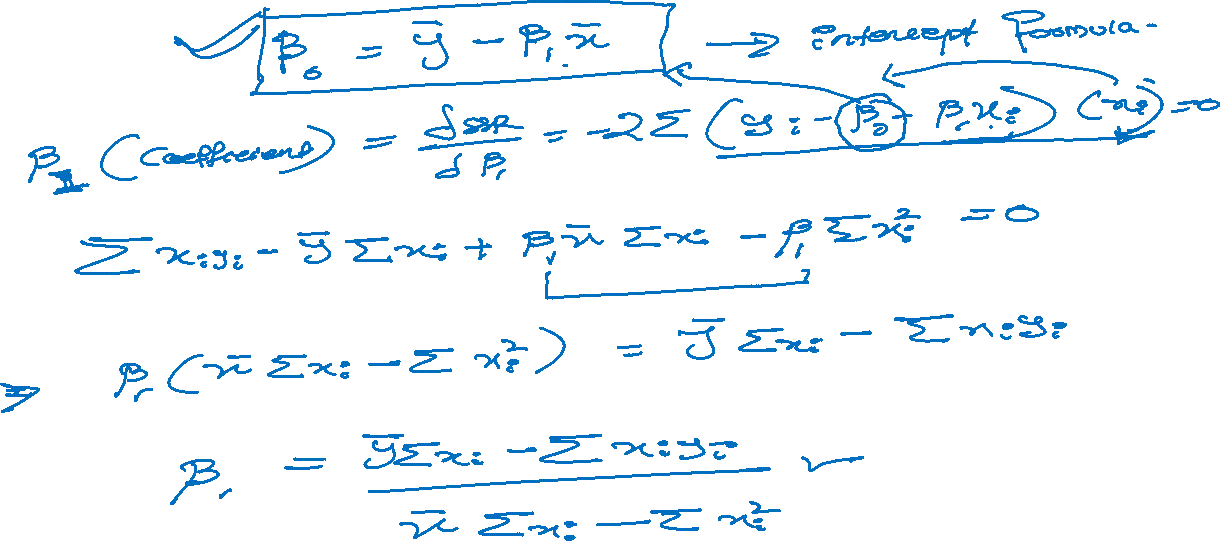 β₀ = ȳ - β₁x̄ → intercept formula-
β₁ (coefficient) = dSSR/dβ₁ = -2Σ (yᵢ - β₀ - β₁xᵢ) (-xᵢ) = 0
Σxᵢyᵢ - ȳ Σxᵢ + β₁x̄ Σxᵢ - β₁ Σxᵢ² = 0
⇒ β₁ (x̄ Σxᵢ - Σ xᵢ²) = ȳ Σxᵢ - Σxᵢyᵢ
β₁ = (ȳΣxᵢ - Σxᵢyᵢ) / (x̄ Σxᵢ - Σ xᵢ²)